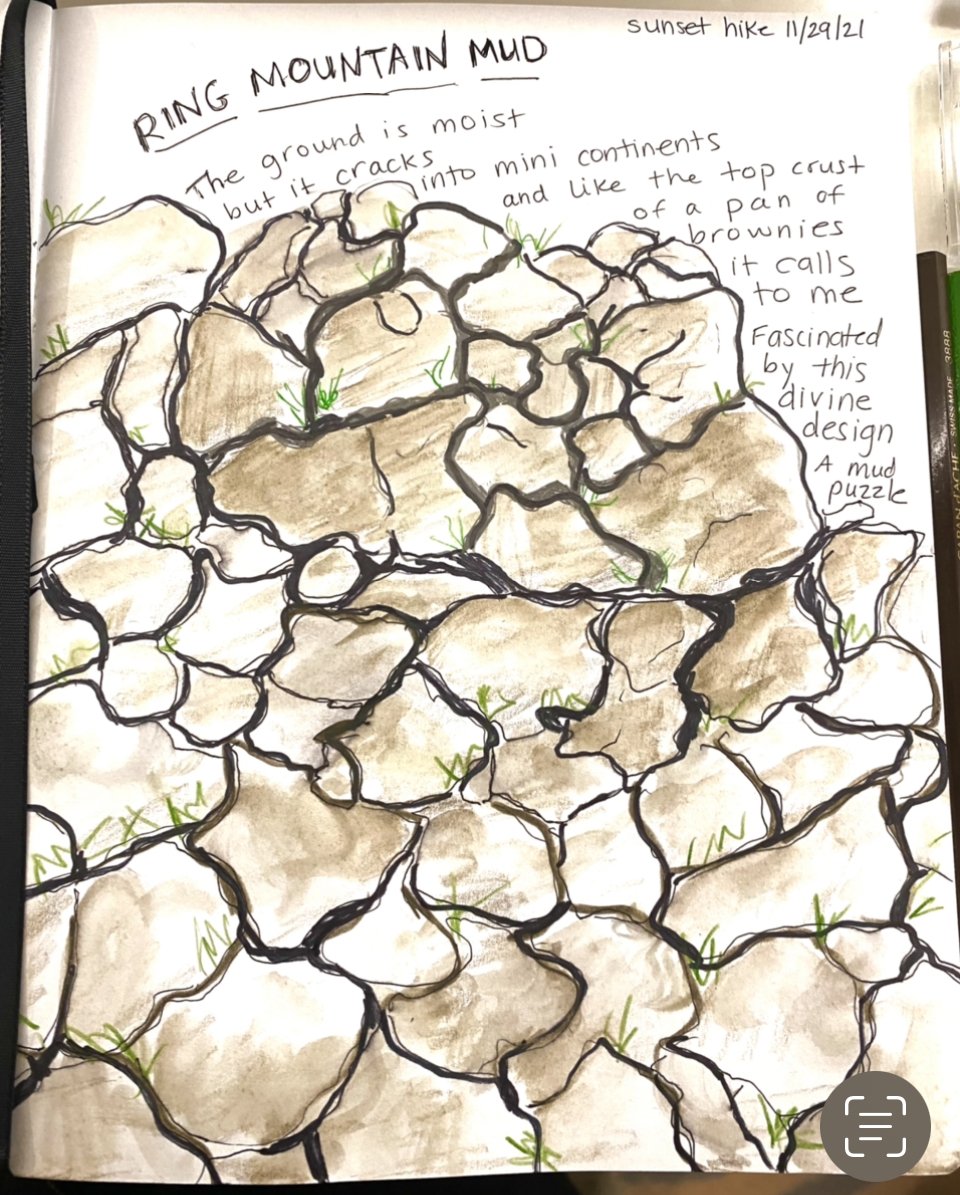 sunset hike 11/29/21
RING MOUNTAIN MUD
The ground is moist
but it cracks
into mini continents
and like the top crust
of a pan of
brownies
it calls
to me
Fascinated
by this
divine
design
A mud
puzzle
CARAN d'ACHE · SWISS MADE 3888